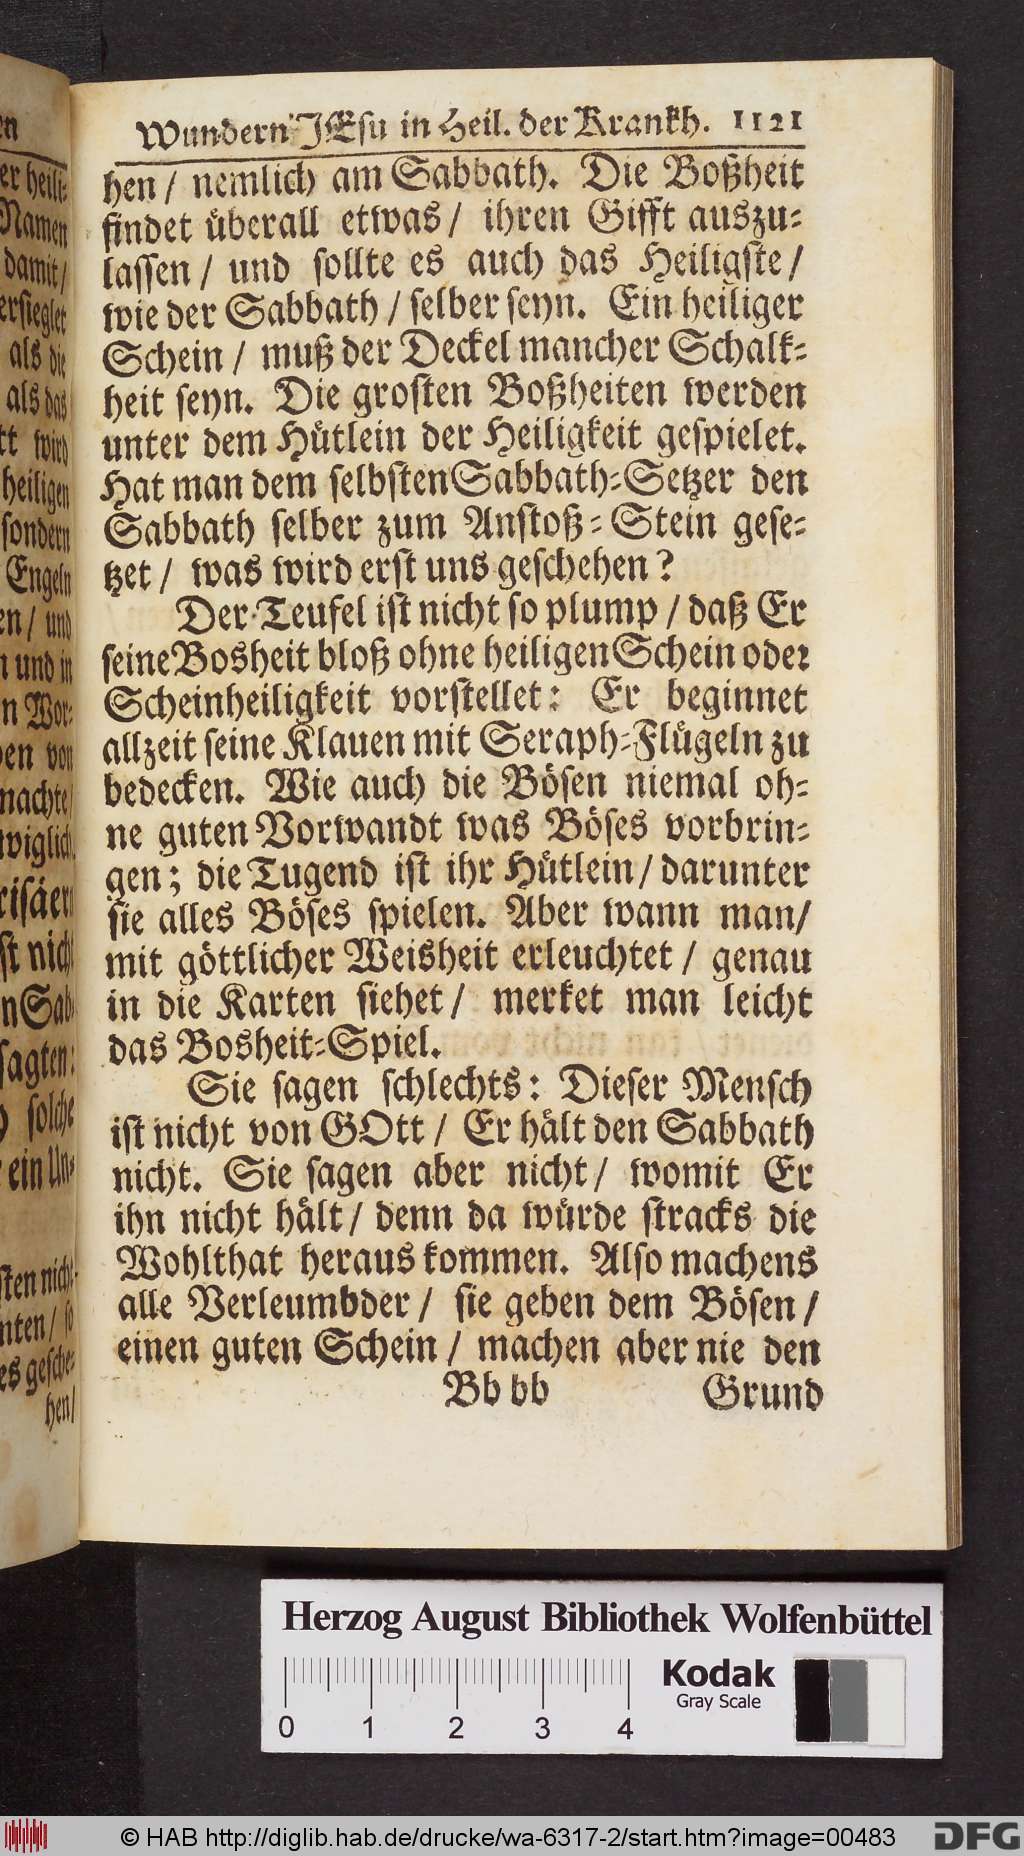 Wundern JEsu in Heil. der Krankh. 1121
hen / nemlich am Sabbath. Die Boßheit
findet überall etwas / ihren Gifft auszu-
lassen / und sollte es auch das Heiligste /
wie der Sabbath / selber seyn. Ein heiliger
Schein / muß der Deckel mancher Schalk-
heit seyn. Die grosten Boßheiten werden
unter dem Hütlein der Heiligkeit gespielet.
Hat man dem selbsten Sabbath-Setzer den
Sabbath selber zum Anstoß-Stein gese-
tzet / was wird erst uns geschehen?
Der Teufel ist nicht so plump / daß Er
seine Bosheit bloß ohne heiligen Schein oder
Scheinheiligkeit vorstellet: Er beginnet
allzeit seine Klauen mit Seraph-Flügeln zu
bedecken. Wie auch die Bösen niemal oh-
ne guten Vorwandt was Böses vorbrin-
gen; die Tugend ist ihr Hütlein / darunter
sie alles Böses spielen. Aber wann man /
mit göttlicher Weisheit erleuchtet / genau
in die Karten siehet / merket man leicht
das Bosheit-Spiel.
Sie sagen schlechts: Dieser Mensch
ist nicht von GOtt / Er hält den Sabbath
nicht. Sie sagen aber nicht / womit Er
ihn nicht hält / denn da würde stracks die
Wohlthat heraus kommen. Also machens
alle Verleumbder / sie geben dem Bösen /
einen guten Schein / machen aber nie den
Bb bb Grund
er heili-
Namen
damit /
ersieglet
als die
als das
wird
heiligen
sondern
Engeln
en / und
und in
n Wor-
von
machte /
wiglich.
st nicht
n Sab-
sagten:
solche
ein Un-
sten nicht
nten / so
es gesche-
hen /
Herzog August Bibliothek Wolfenbüttel
Kodak
Gray Scale
0 1 2 3 4
© HAB http://diglib.hab.de/drucke/wa-6317-2/start.htm?image=00483
DFG